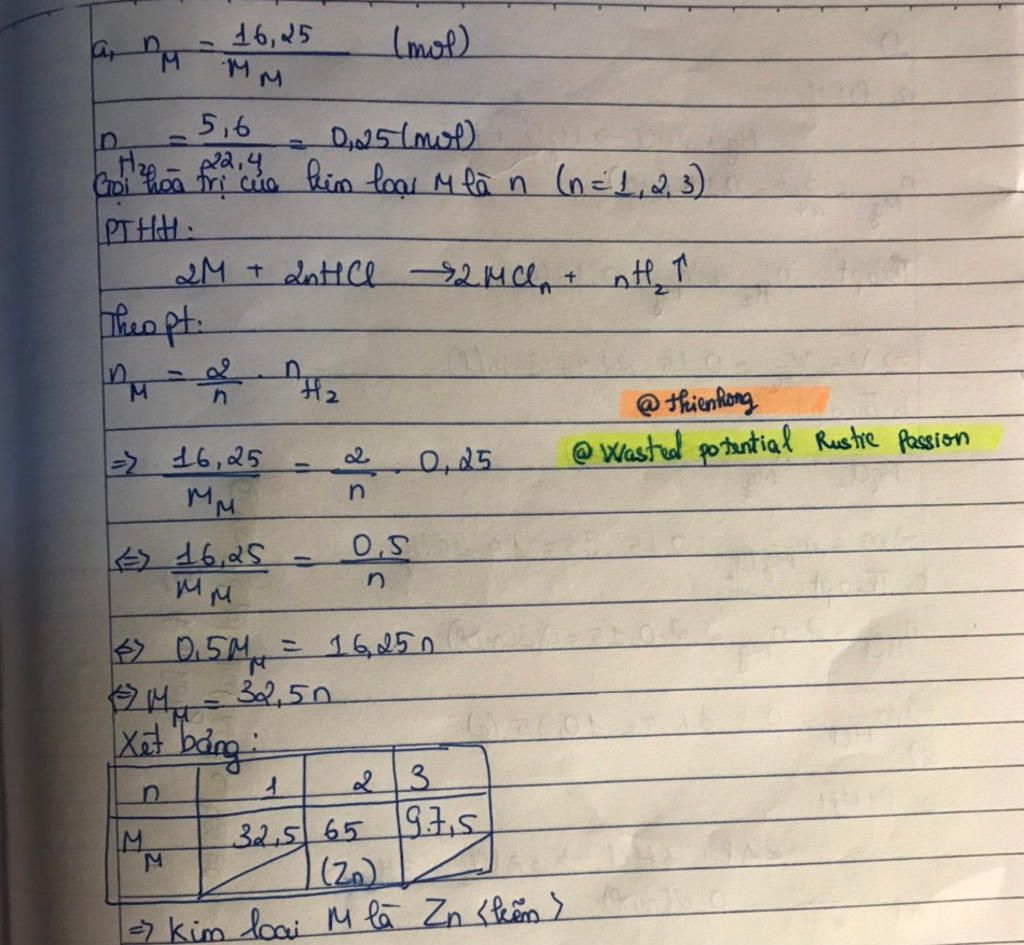 a, n_M = 16,25 / M_M (mol)
n_H2 = 5,6 / 22,4 = 0,25 (mol)
Gọi hoá trị của kim loại M là n (n = 1, 2, 3)
PTHH:
2M + 2nHCl → 2MCl_n + nH_2 ↑
Theo pt:
n_M = 2/n . n_H2
@ thienhong
=> 16,25 / M_M = 2/n . 0,25
@ Wasted potential Rustic Passion
<=> 16,25 / M_M = 0,5 / n
<=> 0,5M_M = 16,25n
<=> M_M = 32,5n
Xét bảng:
n 1 2 3
M_M 32,5 65 97,5
(Zn)
=> Kim loại M là Zn <kẽm>